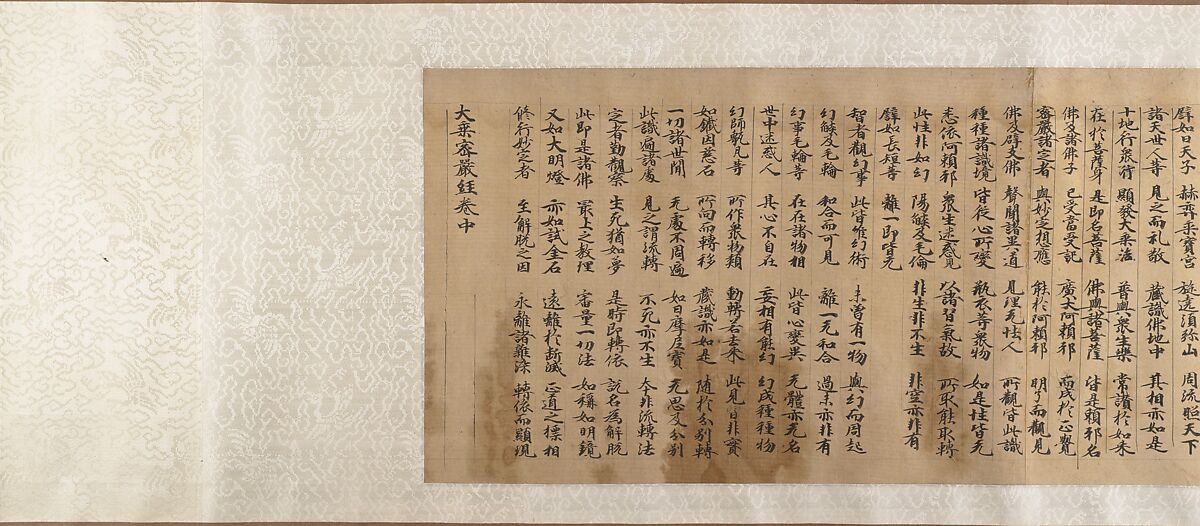 譬如日天子 赫弈乘寶宮 旋遶須弥山 周流照天下
諸天世人等 見之而礼敬 藏識佛地中 其相亦如是
十地行衆行 顯發大乘法 普與衆生樂 常讃於如来
在於菩薩身 是即名菩薩 佛與諸菩薩 皆是賴耶名
佛及諸佛子 已受當受記 廣大阿賴耶 而成於正覺
密嚴諸定者 與妙定相應 能於阿賴耶 明了而觀見
佛及辟支佛 聲聞諸異道 見理无怯人 所觀皆此識
種種諸識境 皆從心所變 瓶衣等衆物 如是性皆无
悉依阿賴耶 衆生迷惑見 以諸習氣故 所取能取轉
此性非如幻 陽𦦨及毛輪 非生非不生 非空亦非有
譬如長短等 離一即皆无
智者觀幻事 此皆唯幻術 未曽有一物 與幻而同起
幻𦦨及毛輪 和合而可見 離一无和合 過未亦非有
幻事毛輪等 在在諸物相 此皆心變異 无體亦无名
世中迷惑人 其心不自在 妄相有能幻 幻成種種物
幻師甎瓦等 所作衆物類 動轉若去来 此見皆非實
如鐵因慈石 所向而轉移 藏識亦如是 随於分別轉
一切諸世間 无處不周遍 如日摩尼寳 无思及分別
此識遍諸處 見之謂流轉 不死亦不生 本非流轉法
定者勤觀察 生死猶如夢 是時即轉依 說名為解脫
此即是諸佛 最上之教理 審量一切法 如稱如明鏡
又如大明燈 亦如試金石 遠離於断滅 正道之標相
修行妙定者 至解脫之因 永離諸雜染 轉依而顯現
大乘密嚴經卷中